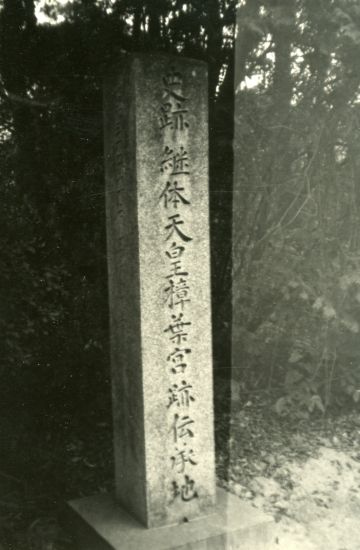 史跡 継体天皇樟葉宮跡伝承地